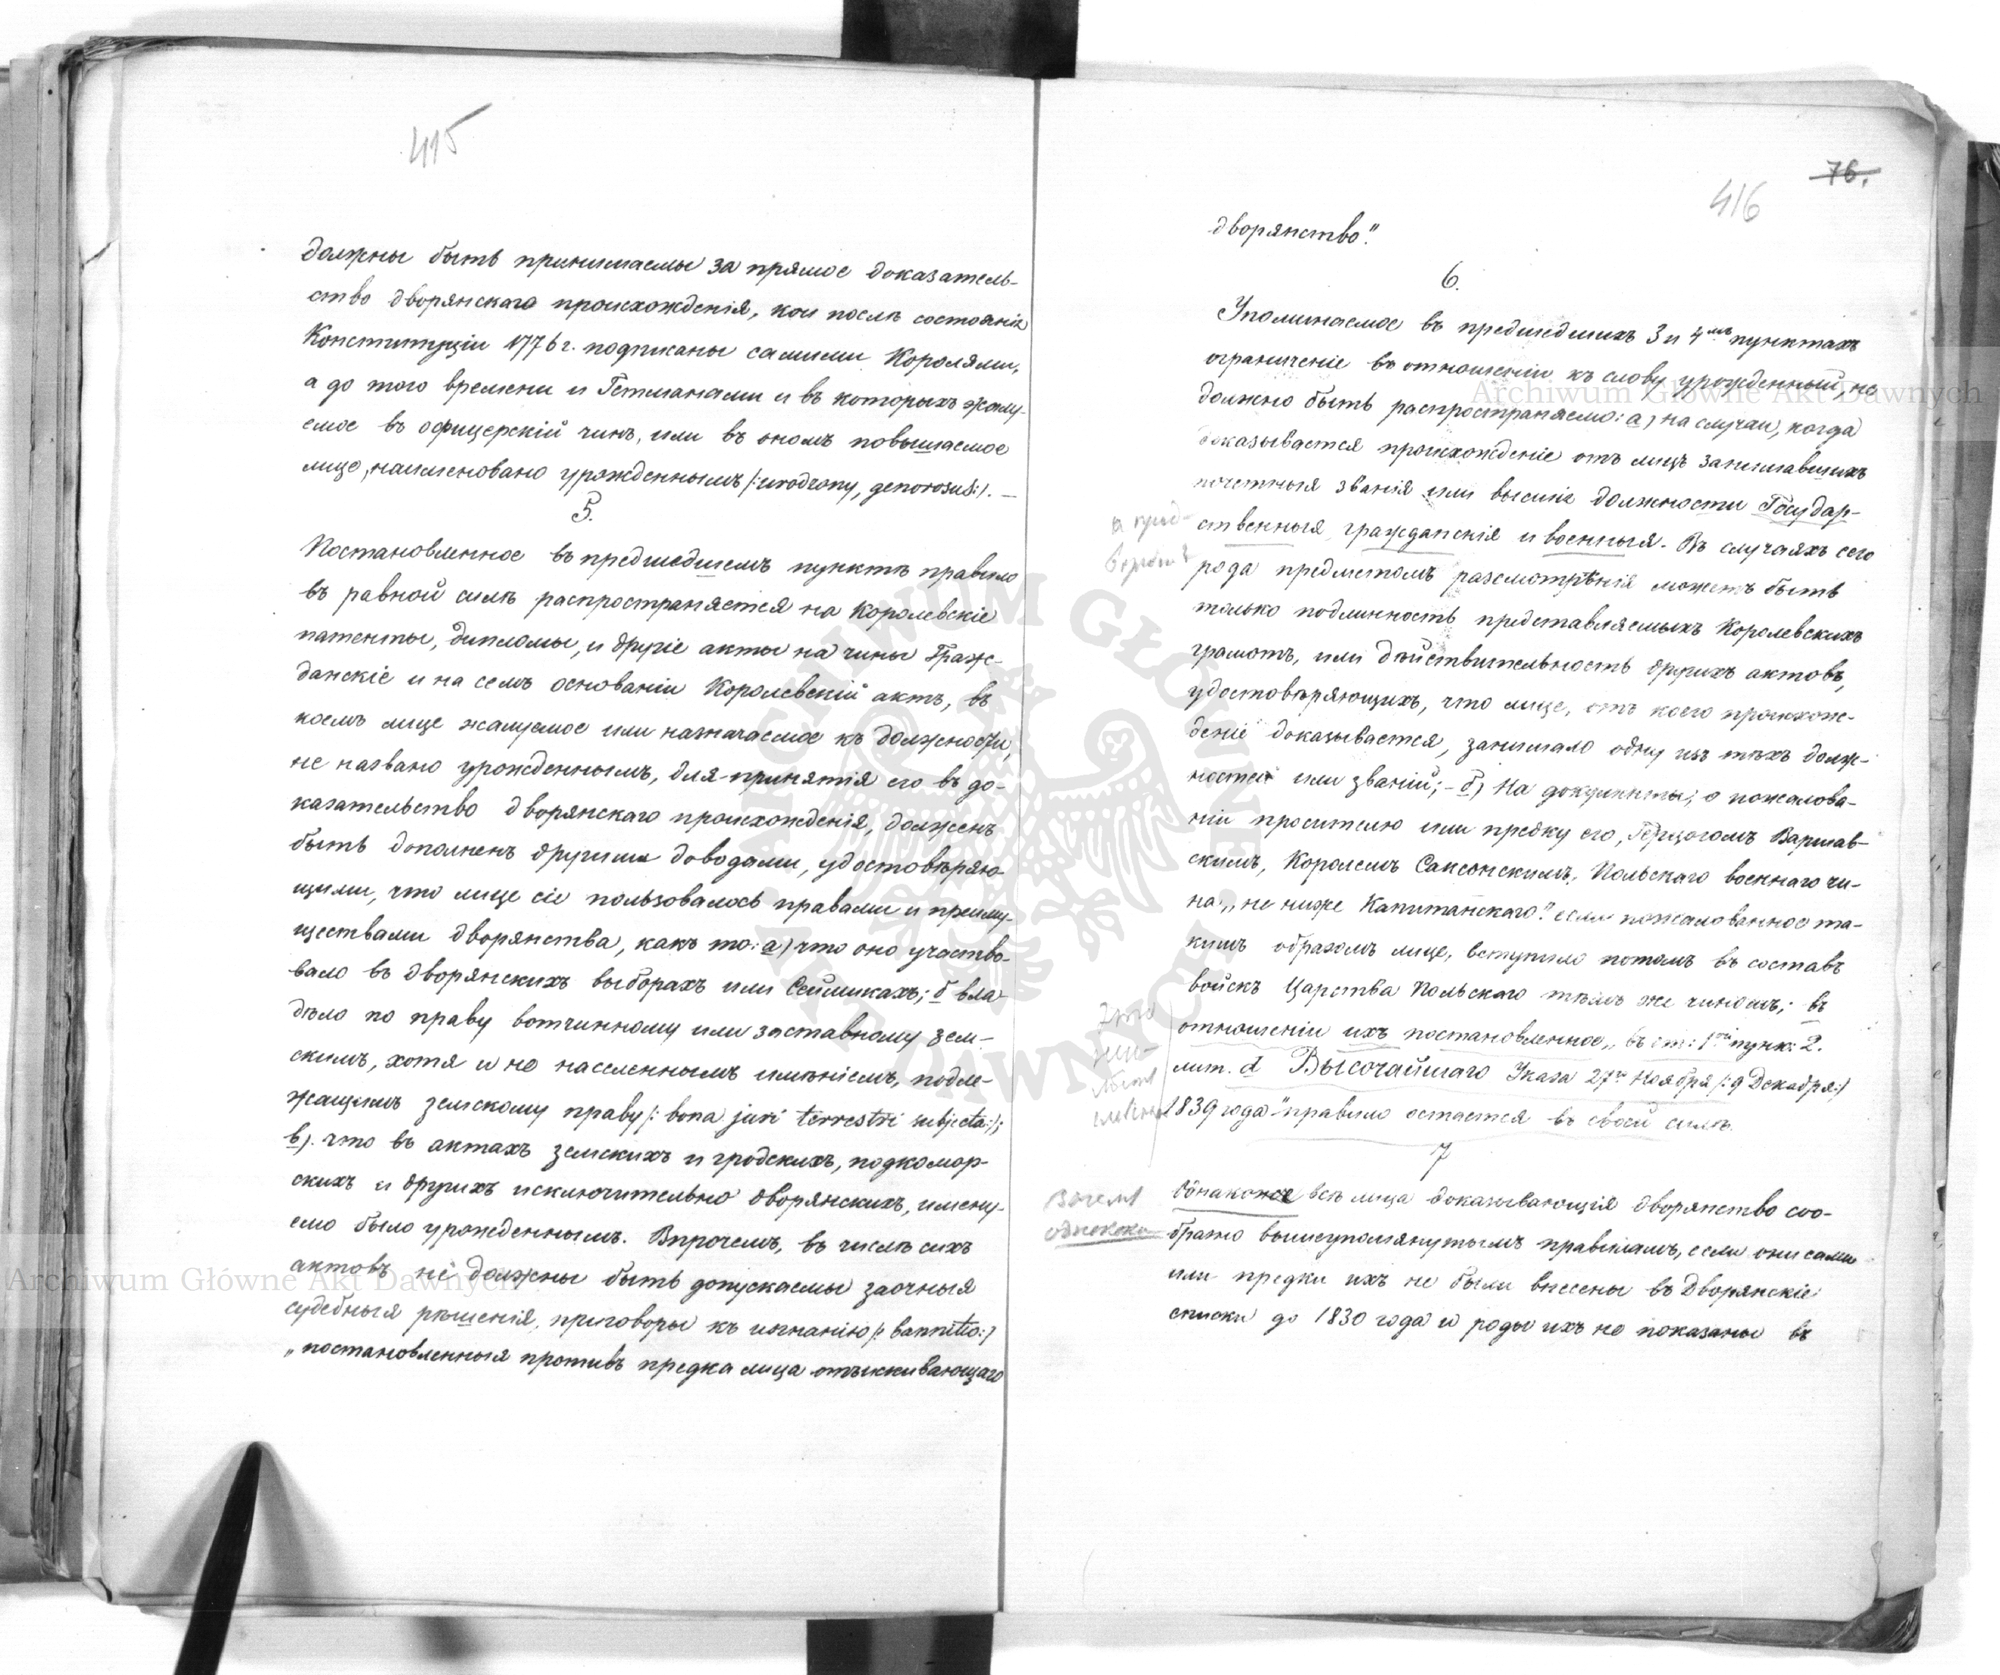 415
должны быть принимаемы за прямое доказатель-
ство дворянскаго происхожденія, кои послѣ состоянія
Конституціи 1776 г. подписаны самими Королями,
а до того времени и Гетманами и въ которыхъ жалу-
емое въ офицерскій чинъ, или въ ономъ повышаемое
лице, наименовано урожденнымъ /:urodzony, generosus:/. —
5.
Постановленное въ предшедшемъ пунктѣ правило
въ равной силѣ распространяется на Королевскіе
патенты, дипломы, и другіе акты на чины Граж-
данскіе и на семъ основаніи Королевскій актъ, въ
коемъ лице жалуемое или назначаемое къ должности,
не названо урожденнымъ, для принятія его въ до-
казательство дворянскаго происхожденія, долженъ
быть дополненъ другими доводами, удостовѣряю-
щими, что лице сіе пользовалось правами и преиму-
ществами дворянства, какъ то: а) что оно участво-
вало въ дворянскихъ выборахъ или Сеймикахъ; б вла-
дѣло по праву вотчинному или заставному зем-
скимъ, хотя и не населеннымъ имѣніемъ, подле-
жащимъ земскому праву /: bona juri terrestri subjecta:/;
в). что въ актахъ земскихъ и гродскихъ, подкомор-
скихъ и другихъ исключительно дворянскихъ, имену-
емо было урожденнымъ. Впрочемъ, въ числѣ сихъ
актовъ не должны быть допускаемы заочныя
судебныя рѣшенія, приговоры къ изгнанію /: bannitio:/
„постановленныя противъ предка лица отыскивающаго
76.
416
дворянство".
6.
Упоминаемое въ предшедшихъ 3 и 4мъ пунктахъ
ограниченіе въ отношеніи къ слову урожденный, не
должно быть распространяемо: а) на случаи, когда
доказывается происхожденіе отъ лицъ занимавшихъ
почетныя званія или высшія должности Государ-
ственныя гражданскія и военныя. Въ случаяхъ сего
рода предметомъ разсмотрѣнія можетъ быть
только подлинность представляемыхъ Королевскихъ
грамотъ, или дѣйствительность другихъ актовъ,
удостовѣряющихъ, что лице, отъ коего происхож-
деніе доказывается, занимало одну изъ тѣхъ долж-
ностей или званій; – б) На документы, о пожалова-
ніи просителю или предку его, Герцогомъ Варшав-
скимъ, Королемъ Саксонскимъ, Польскаго военнаго чи-
на „не ниже Капитанскаго" если пожалованное та-
кимъ образомъ лице, вступило потомъ въ составъ
войскъ Царства Польскаго тѣмъ же чиномъ; въ
отношеніи ихъ постановленное „въ ст: 1ой пунк: 2.
лит. d Высочайшаго Указа 27го Ноября /:9 Декабря:/
1839 года" правило остается въ своей силѣ.
7
Зачемъ
однакоже
Однакоже всѣ лица доказывающія дворянство соо-
бразно вышеупомянутымъ правиламъ, если они сами
или предки ихъ не были внесены въ Дворянскіе
списки до 1830 года и роды ихъ не показаны въ
Archiwum Główne Akt Dawnych
Archiwum Główne Akt Dawnych
ARCHIWUM GŁÓWNE AKT DAWNYCH